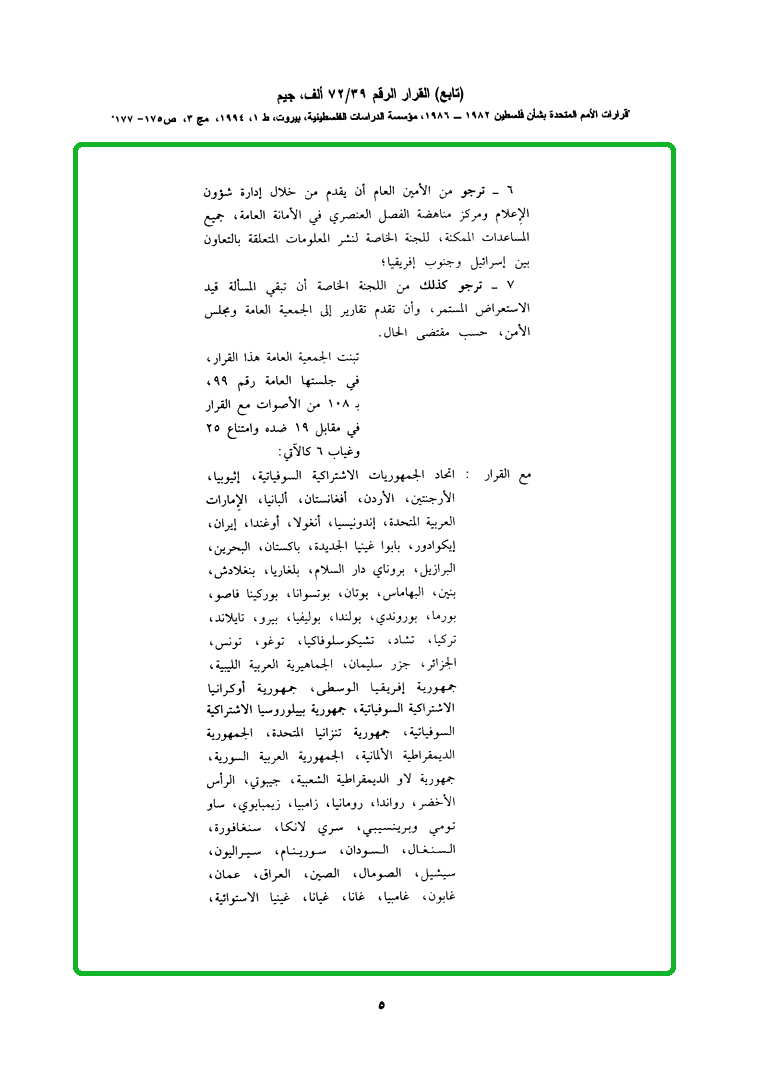 (تابع) القرار الرقم ٧٢/٣٩ ألف، جيم
"قرارات الأمم المتحدة بشأن فلسطين ١٩٨٢ ــ ١٩٨٦، مؤسسة الدراسات الفلسطينية، بيروت، ط ١، ١٩٩٤، مج ٣، ص١٧٥- ١٧٧"
٦ ــ ترجو من الأمين العام أن يقدم من خلال إدارة شؤون
الإعلام ومركز مناهضة الفصل العنصري في الأمانة العامة، جميع
المساعدات الممكنة، للجنة الخاصة لنشر المعلومات المتعلقة بالتعاون
بين إسرائيل وجنوب إفريقيا؛
٧ ــ ترجو كذلك من اللجنة الخاصة أن تبقي المسألة قيد
الاستعراض المستمر، وأن تقدم تقارير إلى الجمعية العامة ومجلس
الأمن، حسب مقتضى الحال.
تبنت الجمعية العامة هذا القرار،
في جلستها العامة رقم ٩٩،
بـ ١٠٨ من الأصوات مع القرار
في مقابل ١٩ ضده وامتناع ٢٥
وغياب ٦ كالآتي:
مع القرار : اتحاد الجمهوريات الاشتراكية السوفياتية، إثيوبيا،
الأرجنتين، الأردن، أفغانستان، ألبانيا، الإمارات
العربية المتحدة، إندونيسيا، أنغولا، أوغندا، إيران،
إيكوادور، بابوا غينيا الجديدة، باكستان، البحرين،
البرازيل، بروناي دار السلام، بلغاريا، بنغلادش،
بنين، البهاماس، بوتان، بوتسوانا، بوركينا فاصو،
بورما، بوروندي، بولندا، بوليفيا، بيرو، تايلاند،
تركيا، تشاد، تشيكوسلوفاكيا، توغو، تونس،
الجزائر، جزر سليمان، الجماهيرية العربية الليبية،
جمهورية إفريقيا الوسطى، جمهورية أوكرانيا
الاشتراكية السوفياتية، جمهورية بييلوروسيا الاشتراكية
السوفياتية، جمهورية تنزانيا المتحدة، الجمهورية
الديمقراطية الألمانية، الجمهورية العربية السورية،
جمهورية لاو الديمقراطية الشعبية، جيبوتي، الرأس
الأخضر، رواندا، رومانيا، زامبيا، زيمبابوي، ساو
تومي وبرينسيبي، سري لانكا، سنغافورة،
السنغال، السودان، سورينام، سيراليون،
سيشيل، الصومال، الصين، العراق، عمان،
غابون، غامبيا، غانا، غيانا، غينيا الاستوائية،
٥